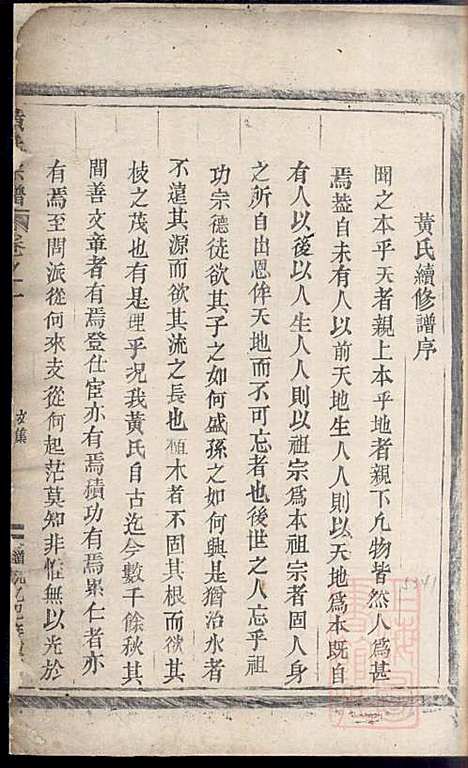 黃氏續修譜序
聞之本乎天者親上本乎地者親下凡物皆然人為甚
焉蓋自未有人以前天地生人人則以天地為本既自
有人以後以人生人人則以祖宗為本祖宗者固人身
之所自出恩侔天地而不可忘者也後世之人忘乎祖
功宗德徒欲其子之如何盛孫之如何興是猶治水者
不遠其源而欲其流之長也植木者不固其根而欲其
枝之茂也有是理乎况我黃氏自古迄今數千餘秋其
間善文章者有焉登仕宦亦有焉積功有焉累仁者亦
有焉至問派從何來支從何起茫莫知非惟無以光於
宗譜
卷之一
5341